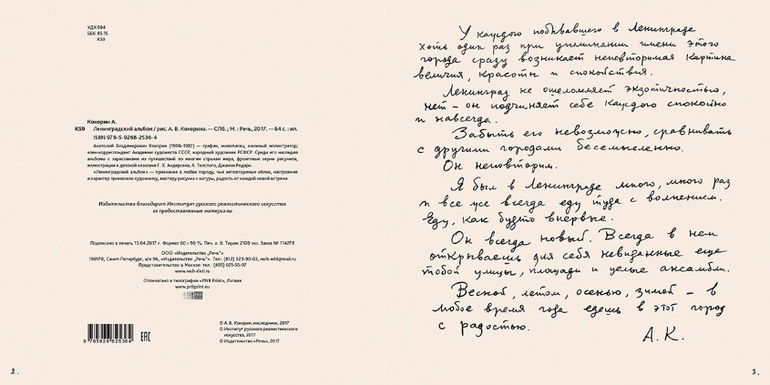 УДК 084
ББК 85.15
К59
Кокорин А.
К59 Ленинградский альбом / рис. А. В. Кокорина. — СПб. ; М. : Речь, 2017. — 64 с. : ил.
ISBN 978-5-9268-2536-4
Анатолий Владимирович Кокорин (1908–1987) — график, живописец, книжный иллюстратор;
член-корреспондент Академии художеств СССР, народный художник РСФСР. Среди его наследия
альбомы с зарисовками из путешествий по многим странам мира, фронтовые серии рисунков,
иллюстрации к детской классике Г. Х. Андерсена, А. Толстого, Джанни Родари.
«Ленинградский альбом» — признание в любви городу, чьи неповторимый облик, настроение
и характер приносили художнику, мастеру рисунка с натуры, радость от каждой новой встречи.
Издательство благодарит Институт русского реалистического искусства
за предоставленные материалы
Подписано в печать 13.04.2017 г. Формат 60 × 90 ⅛. Печ. л. 8. Тираж 2100 экз. Заказ № 114278
ООО «Издательство „Речь“»
199178, Санкт-Петербург, а/я 96, «Издательство „Речь“». Тел. (812) 323-90-63, rech-edit@mail.ru
Представительство в Москве: тел.: (495) 626-55-97
www.rech-deti.ru
Отпечатано в типографии «PNB Print», Латвия
www.pnbprint.eu
9 785926 825364
EAC
© А. В. Кокорин, наследники, 2017
© Институт русского реалистического
искусства, 2017
© Издательство «Речь», 2017
2.
У каждого побывавшего в Ленинграде
хоть один раз при упоминании имени этого
города сразу возникает неповторимая картина
величия, красоты и спокойствия.
Ленинград не ошеломляет экзотичностью,
нет – он подчиняет себе каждого спокойно
и навсегда.
Забыть его невозможно, сравнивать
с другими городами бессмысленно.
Он неповторим.
Я был в Ленинграде много, много раз
и все же всегда еду туда с волнением.
Еду, как будто впервые.
Он всегда новый. Всегда в нем
открываешь для себя невиданные еще
тобой улицы, площади и целые ансамбли.
Весной, летом, осенью, зимой – в
любое время года едешь в этот город
с радостью.
А.К.
3.